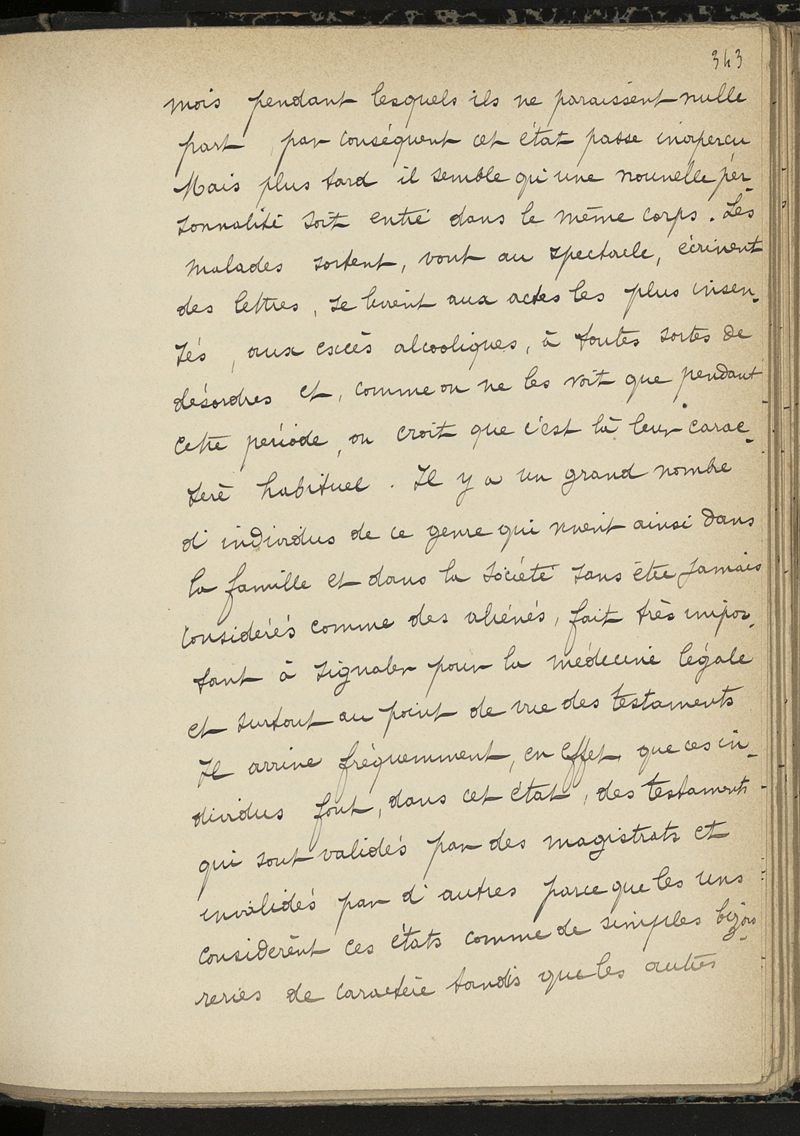 343
mois pendant lesquels ils ne paraissent nulle
part, par conséquent cet état passe inaperçu
Mais plus tard il semble qu'une nouvelle per-
sonnalité soit entré dans le même corps. Les
malades sortent, vont au spectacle, écrivent
des lettres, se livrent aux actes les plus insen-
sés, aux excès alcooliques, à toutes sortes de
désordres et, comme on ne les voit que pendant
cette période, on croit que c'est là leur carac-
tère habituel. Il y a un grand nombre
d'individus de ce genre qui vivent ainsi dans
la famille et dans la société sans être jamais
considérés comme des aliénés, fait très impor-
tant à signaler pour la médecine légale
et surtout au point de vue des testaments
Il arrive fréquemment, en effet, que ces in-
dividus font, dans cet état, des testaments
qui sont validés par des magistrats et
invalidés par d'autres parce que les uns
considèrent ces états comme de simples bizar-
reries de caractère tandis que les autres